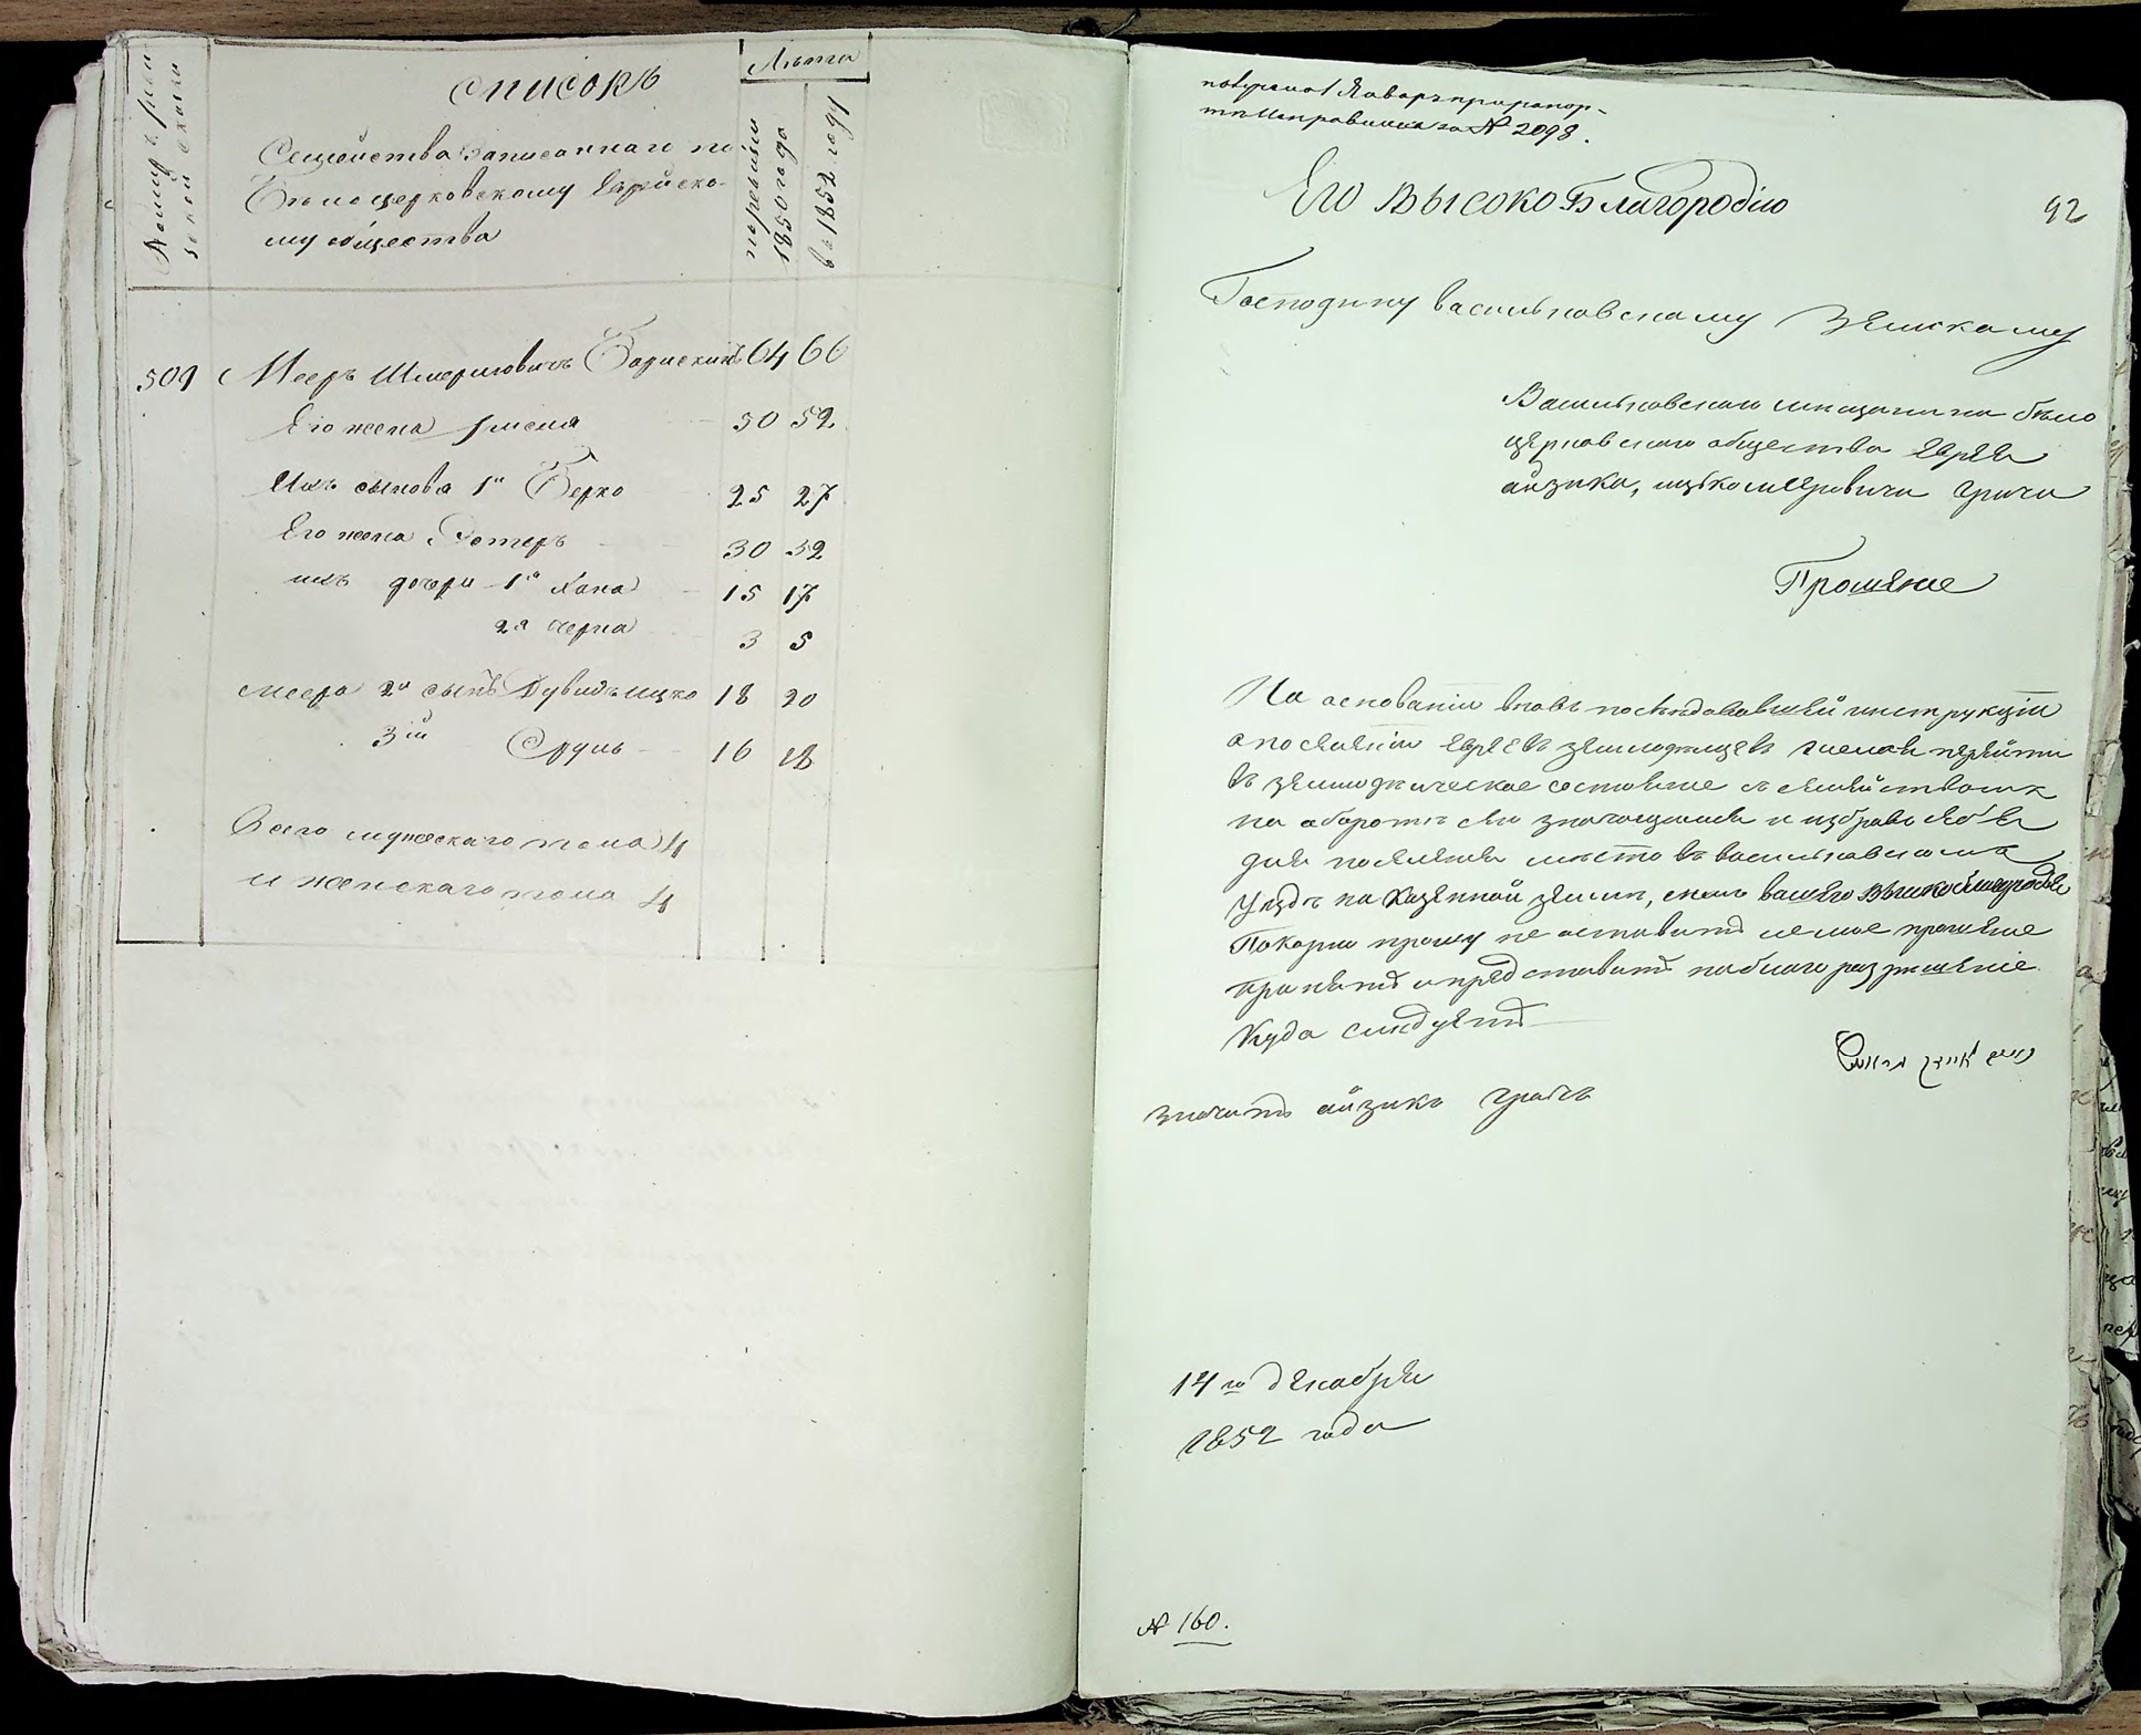 Номеръ реви
зской скаски
Списокъ
Семейства Записаннаго по
Бѣлоцерковскому Еврейско-
му обществу
Лѣта
по ревизіи
1850 года
въ 1852 году
509 Мееръ Шмериовичъ Борискинъ 64 66
Его жена 50 52
Ихъ сынова 1й Берко 25 27
Его жена Эстеръ 30 32
ихъ дочери 1я Хана 15 17
2я Черна 3 5
Меера 2й сынъ Дувидъ Ицко 18 20
3ій Сруль 16 18
Всего мужескаго пола 4
и женскаго пола 4
получено 1 Января при рапор-
тѣ Исправника за № 2098.
92
Его Высоко Благородію
Господину Васильковскому Земскому
Васильковскаго мещанина бѣло
церковскаго общества Еврея
айзика, ицька меeровича Грача
Прошение
На основаніи вновь последовавшей инструкціи
о поселеніи Евреевъ земледельцевъ желая перейти
въ земледельческое состояние съ семействомъ
на обороте сего значащимся и избравъ себе
для поселения место въ васильковскомъ
Уезде на Казенной земли, самъ вашего Высокоблагородия
Покорно прошу не оставить сие мое прошение
принять и представить на благоразрешеніе
Куда следуетъ
значитъ айзикъ Грачъ
14го декабря
1852 года
№ 160.